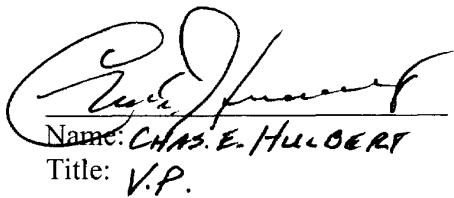 Name: CHAS. E. HULBERT
Title: V.P.